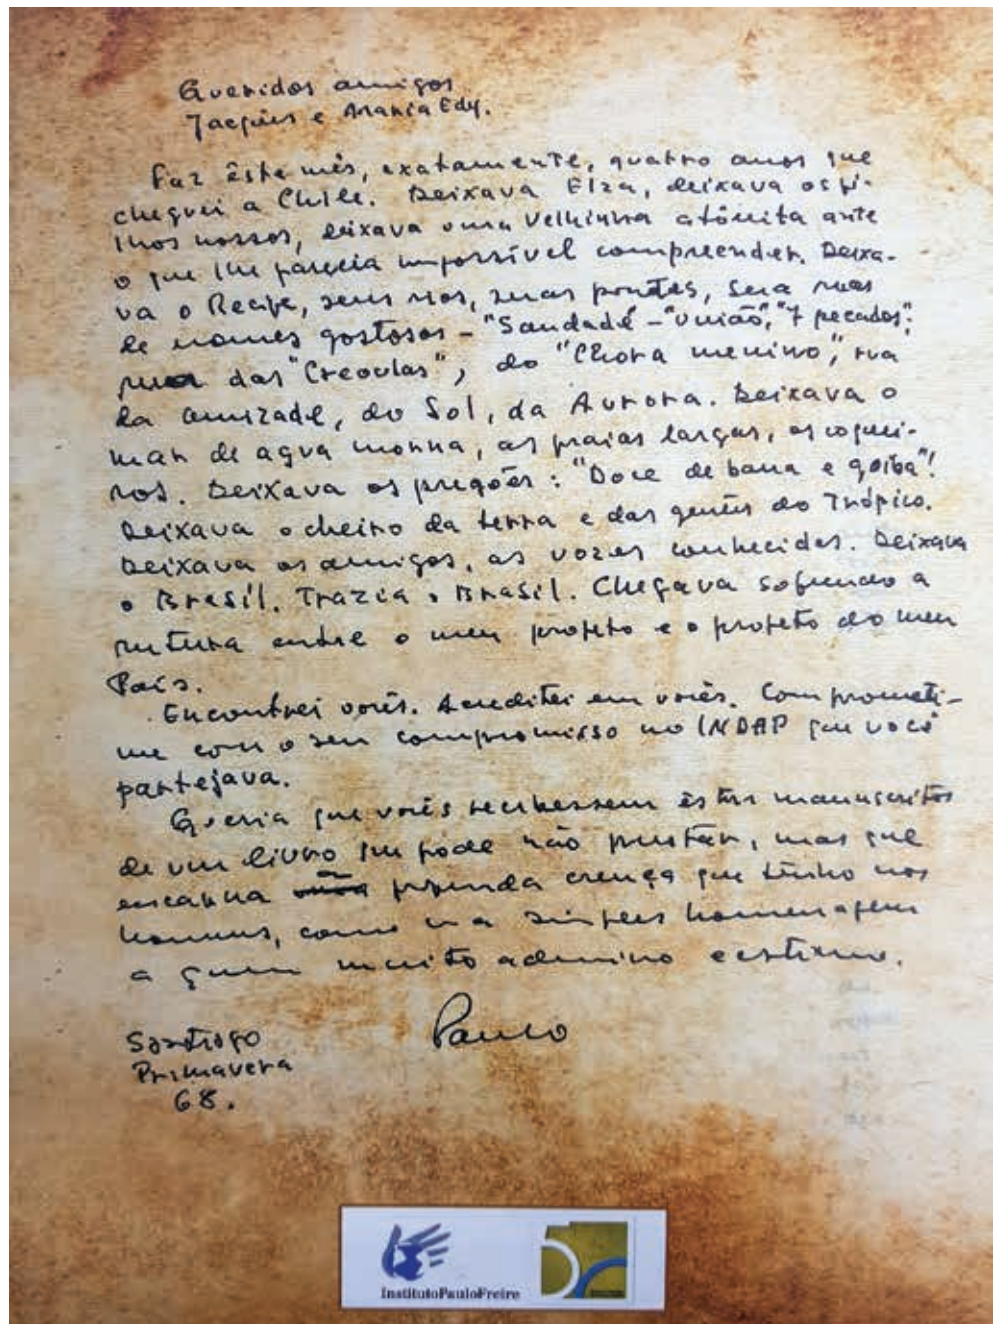 Queridos amigos
Jacques e Maria Edy.
Faz êste mês, exatamente, quatro anos que
cheguei a Chile. Deixava Elza, deixava os fi-
lhos nossos, deixava uma velhinha atônita ante
o que lhe parecia impossível compreender. Deixa-
va o Recife, seus rios, suas pontes, suas ruas
de nomes gostosos – "Saudade" – "União", "7 pecados",
rua das "Creoulas", do "Chora menino", rua
da amizade, do Sol, da Aurora. Deixava o
mar de agua morna, as praias largas, os coquei-
ros. Deixava os pregões: "Doce de banana e goiaba"!
Deixava o cheiro da terra e das gentes do Trópico.
Deixava os amigos, as vozes conhecidas. Deixava
o Brasil. Trazia o Brasil. Chegava sofrendo a
rutura entre o meu projeto e o projeto do meu
País.
Encontrei vocês. Acreditei em vocês. Comprometi-
me com o seu compromisso no INDAP que você
partejava.
Queria que vocês recebessem êstes manuscritos
de um livro que pode não prestar, mas que
encarna a profunda crença que tenho nos
homens, como uma simples homenagem
a quem muito admiro e estimo.
Paulo
Santiago
Primavera
68.
InstitutoPauloFreire